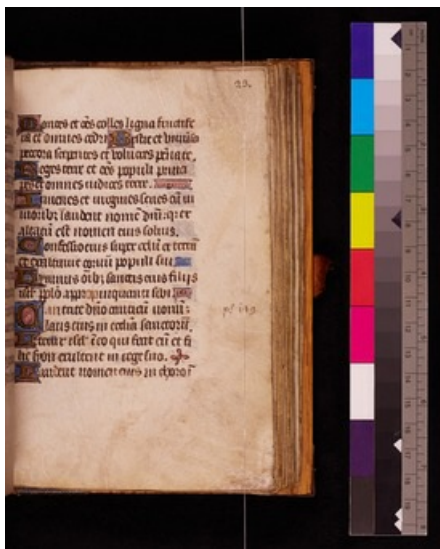 29.
Montes et oēs colles ligna fructife
ra et omnes cedri Bestie et universa
pecora serpentes et volucres pennate.
Reges terre et oēs populi princi
pes et omnes iudices terre.
Iuvenes et virgines senes cū iu
nioribus laudent nomē dñi: quia
altatū est nomen eius solius.
Confessio eius super celū et terrā
et exaltavit cornu populi sui
Hymnus oībꝫ sanctis eius filiis
isrl' pplō appropinquanti sibi.
Cantate dño canticū novū:
laus eius in ecclīa sanctorū.
Letetur isrl' in eo qui fecit eū et fi
lie syon exultent in rege suo.
Laudent nomen eius in choro
ps 149